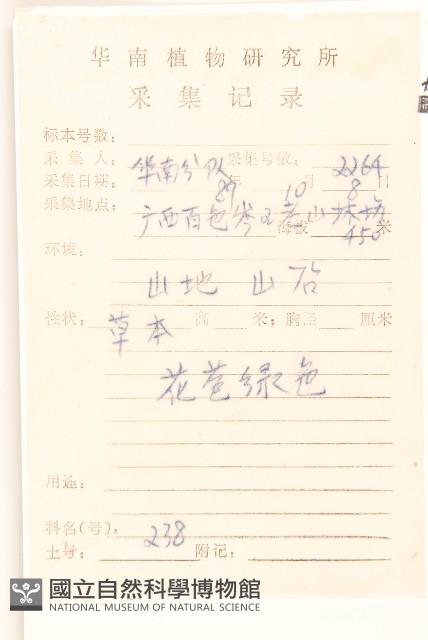 华南植物研究所
采集记录
标本号数：
采集人： 华南分队 采集号数： 2264
采集日期： 89年 10月 8日
采集地点： 广西百色岑王老山林场
海拔 450 米
环境：
山地 山
性状： 草本 高 米；胸径 厘米
花苞绿色
用途：
科名(号)： 238
土名： 附记：
國立自然科學博物館
NATIONAL MUSEUM OF NATURAL SCIENCE